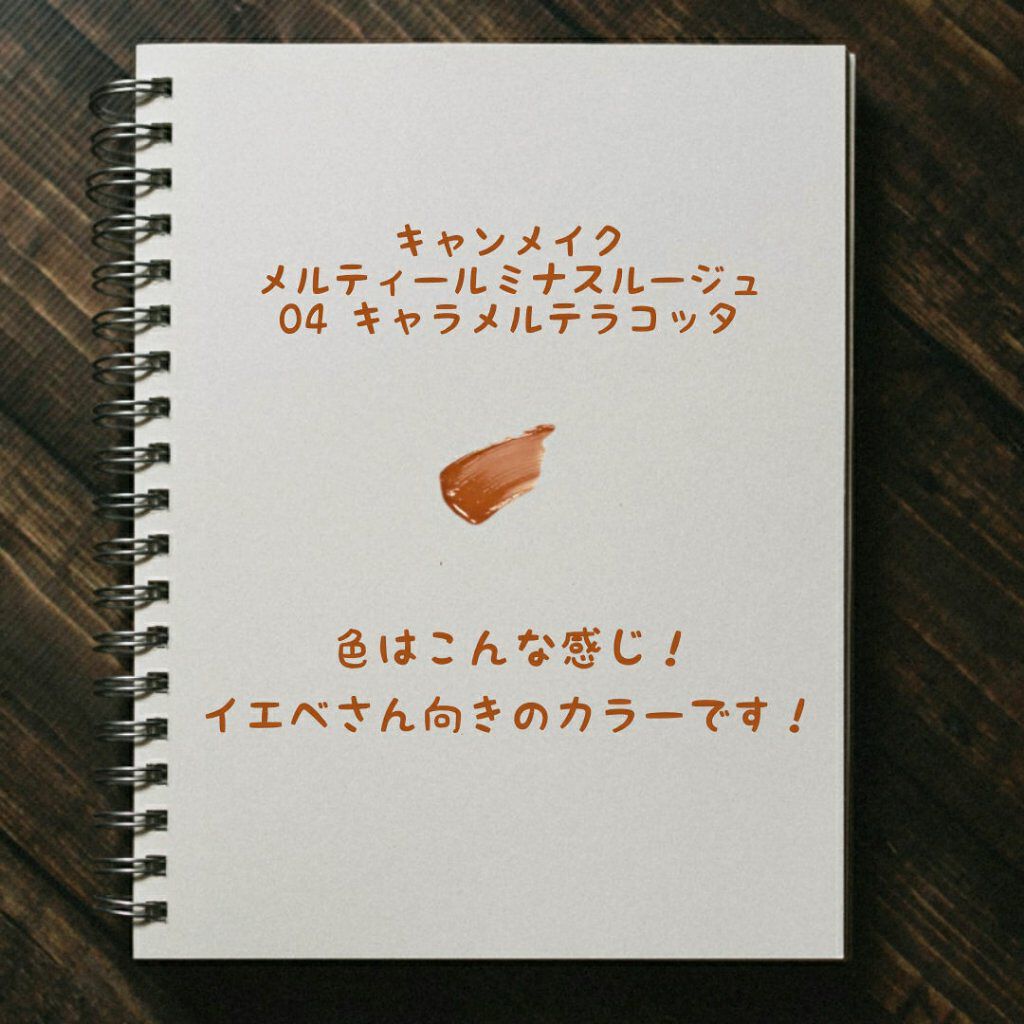 キャンメイク
メルティールミナスルージュ
04 キャラメルテラコッタ
色はこんな感じ！
イエベさん向きのカラーです！